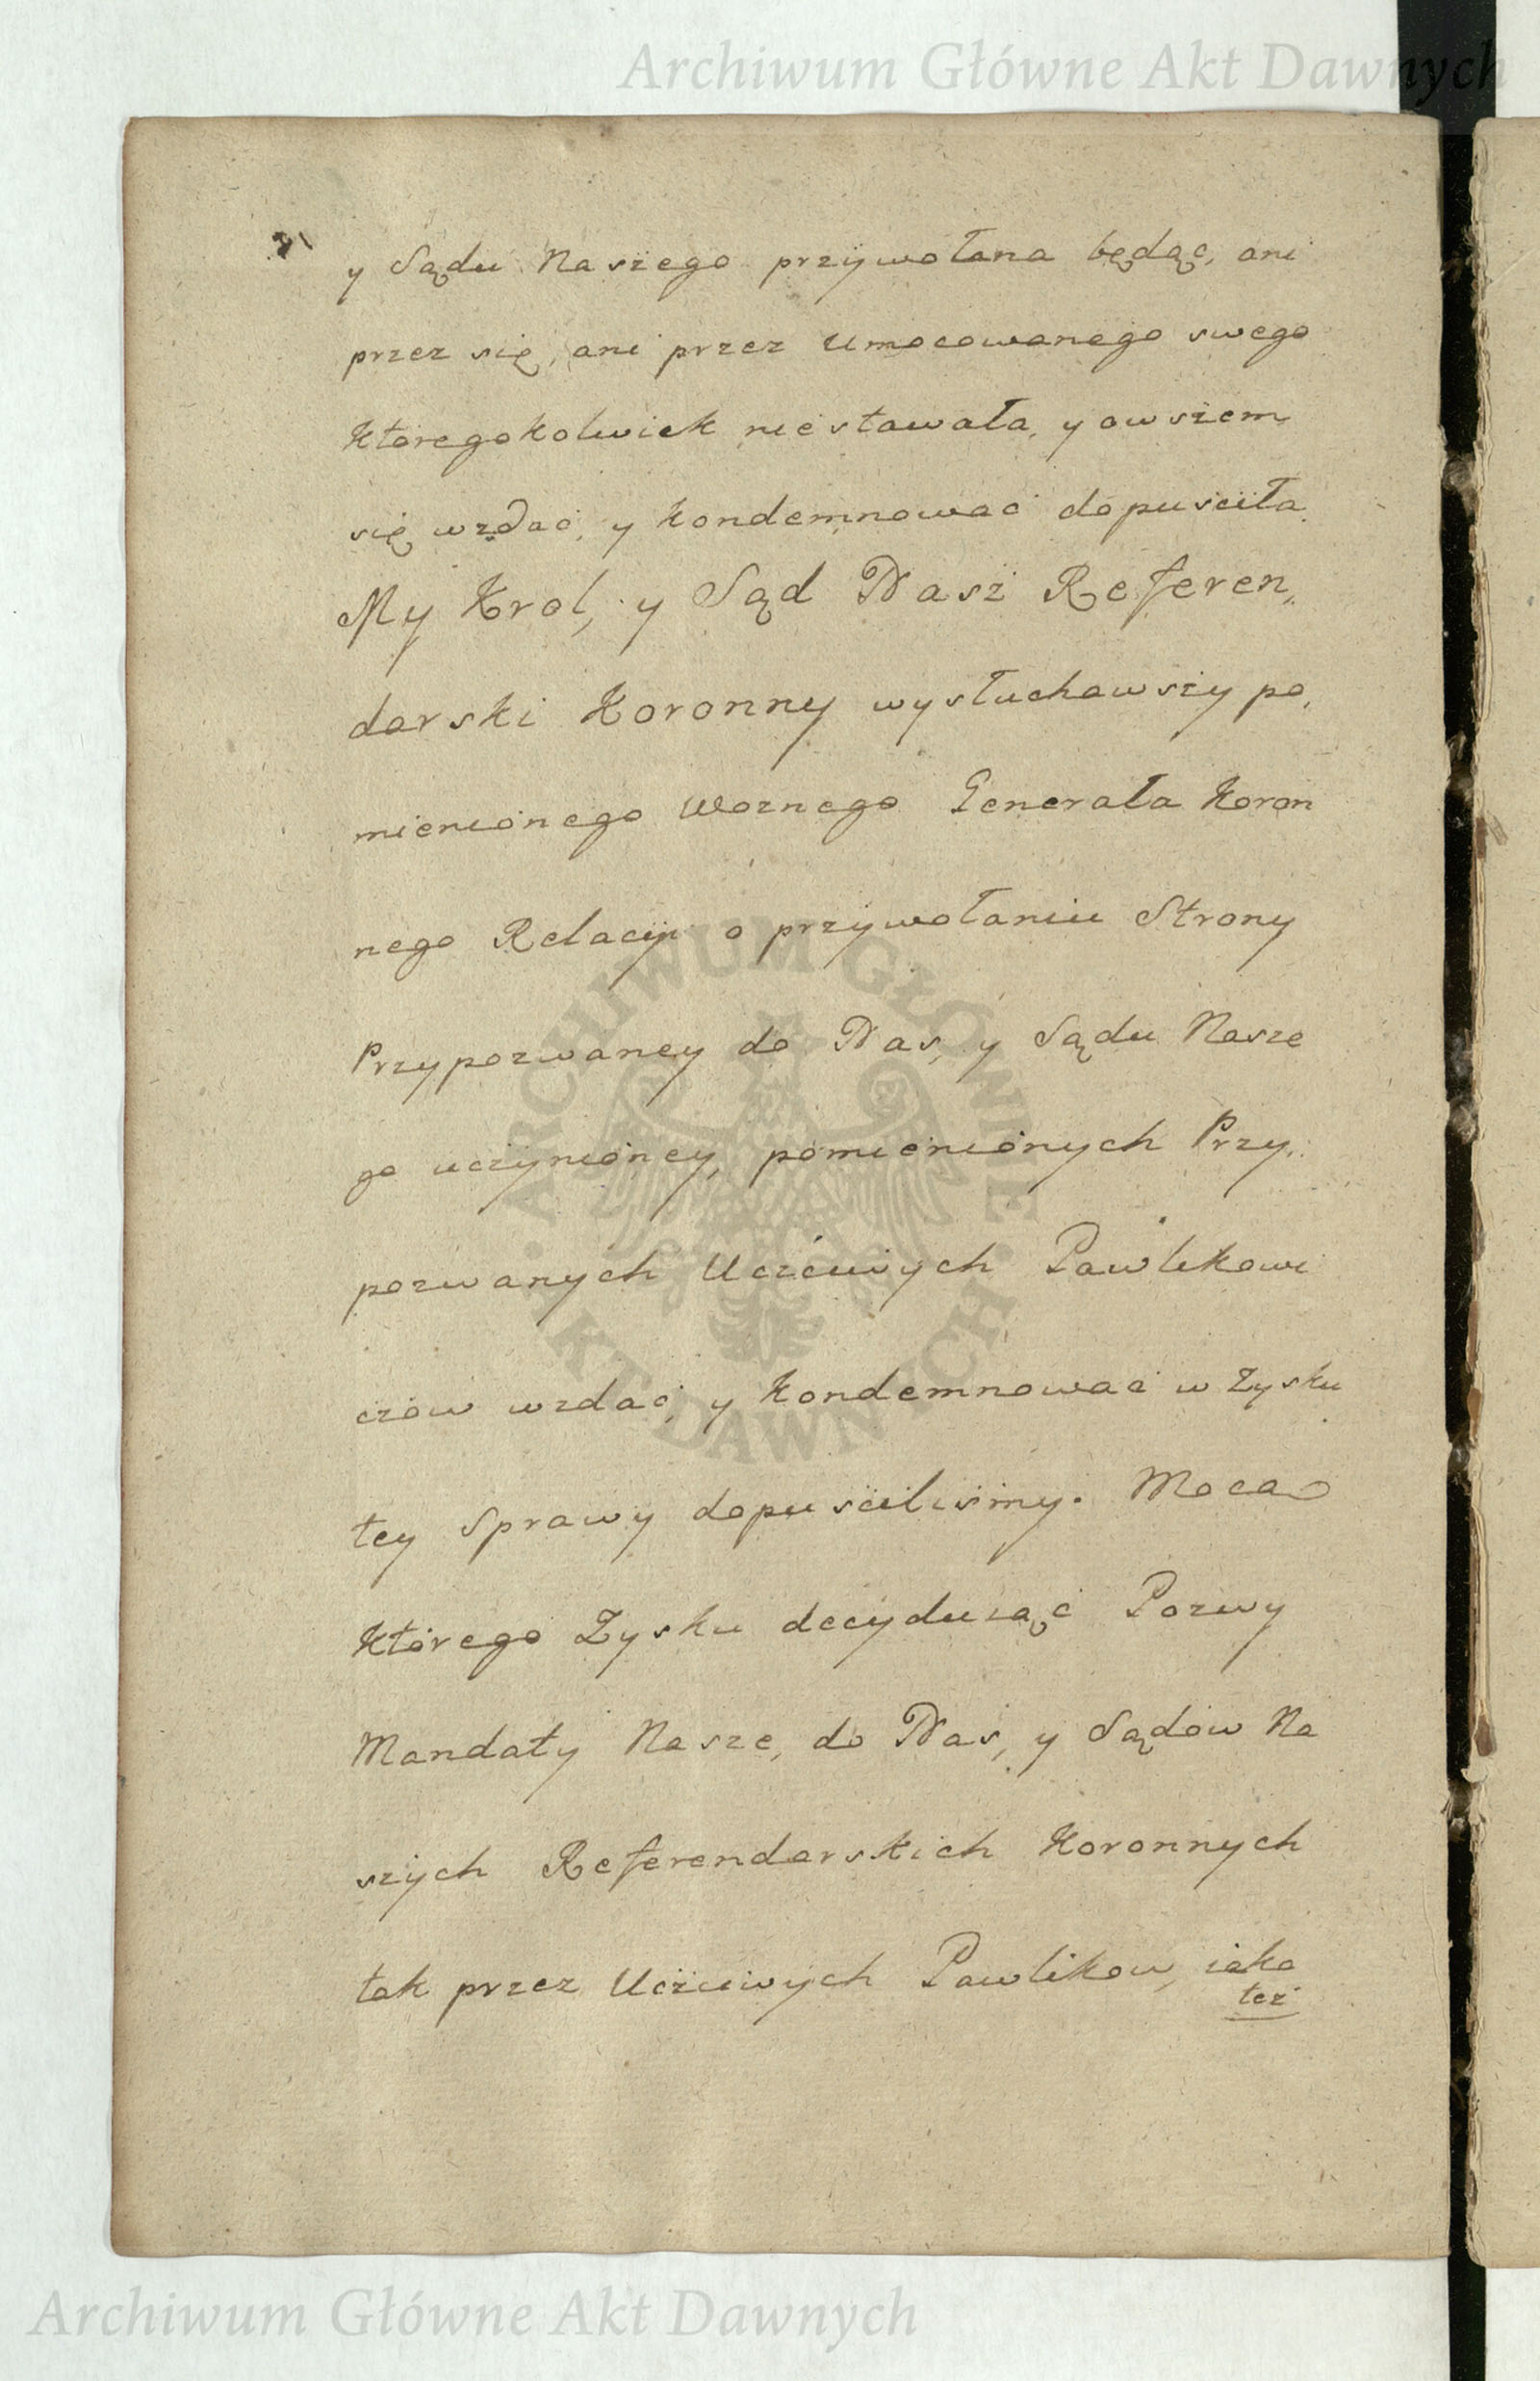 Archiwum Główne Akt Dawnych
y Sądu Naszego przywołana będąc, ani
przez się, ani przez Umocowanego swego
Ktoregokolwiek niestawała, y owszem
się wzdać, y kondemnować dopuściła
My Krol, y Sąd Nasz Referen,,
darski Koronny wysłuchawszy po,
mienionego Woznego Generała Koron
nego Relacyi o przywołaniu Strony
Przypozwaney do Nas, y Sądu Nasze
go uczynioney, pomienionych Przy,,
pozwanych Uczciwych Pawlikowi
czow wzdać, y Kondemnować w Zysku
tey Sprawy dopuściliśmy. Mocą
Którego Zysku decyduiąc Pozwy
Mandaty Nasze, do Nas, y Sądów Na
szych Referendarskich Koronnych
tak przez Uczciwych Pawlikow, iako
też
ARCHIWUM GŁÓWNE · AKT DAWNYCH ·
Archiwum Główne Akt Dawnych